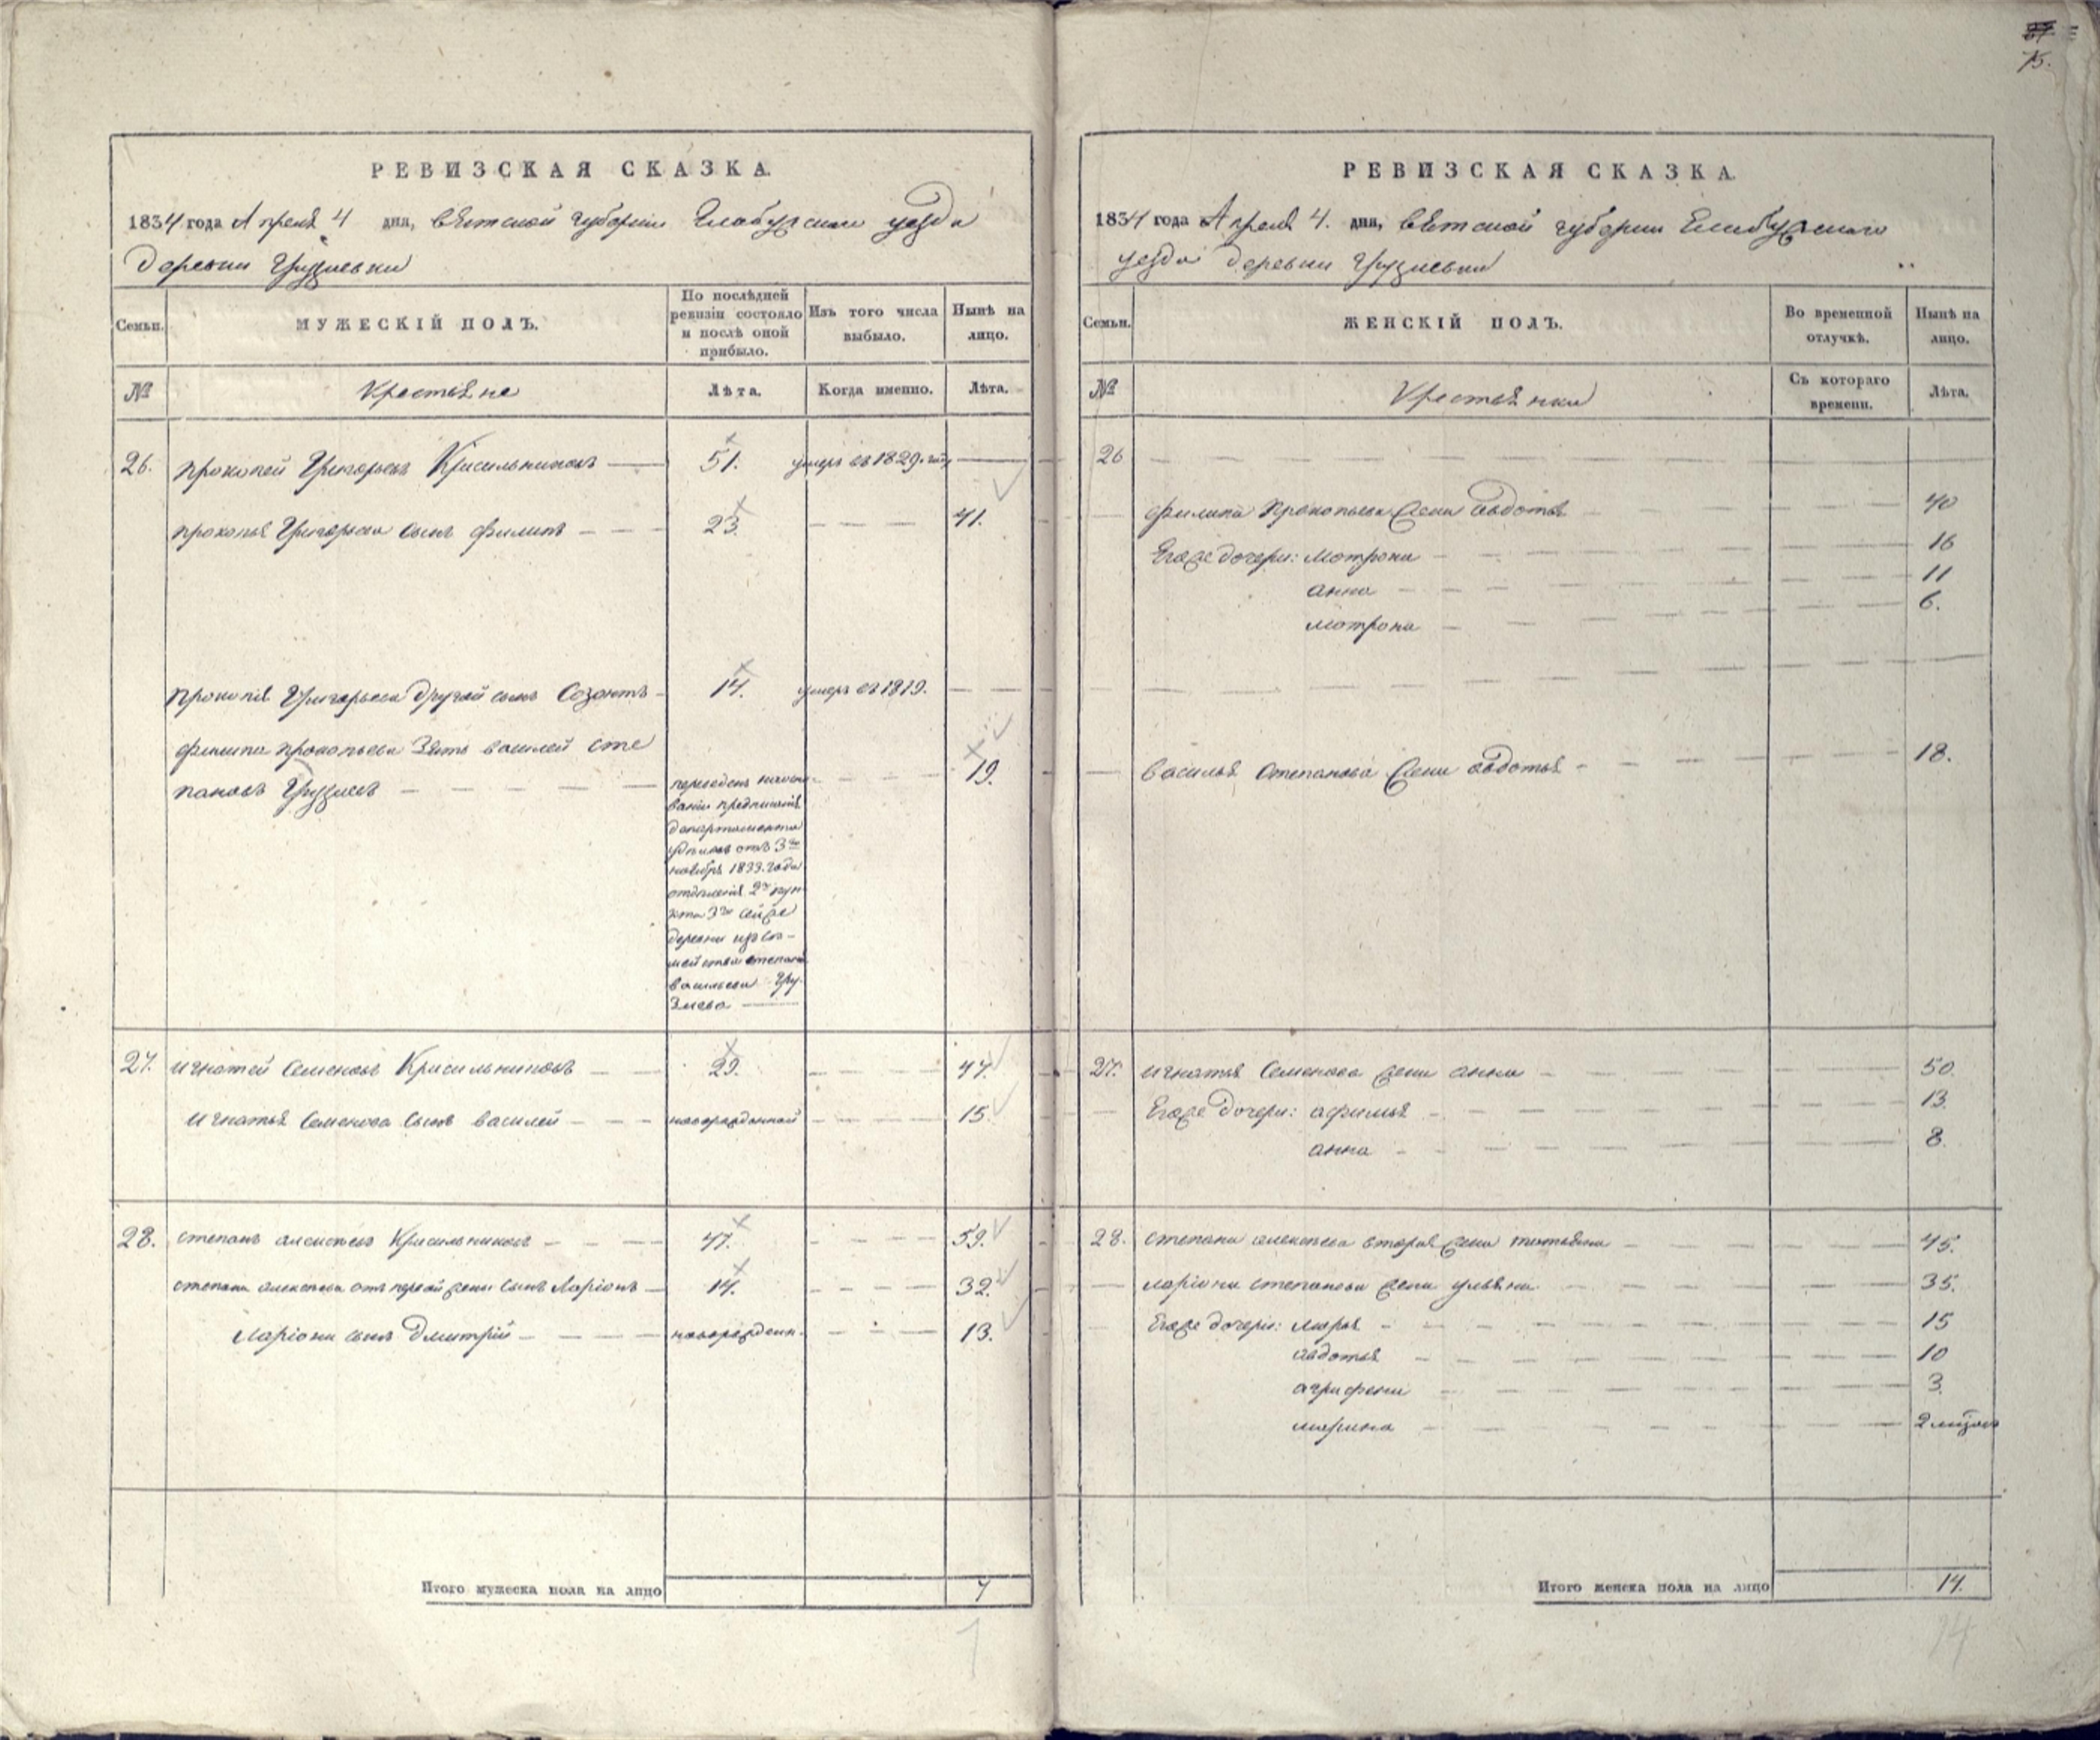 75.
РЕВИЗСКАЯ СКАЗКА.
1834 года Апреля 4 дня, Вятской губернии Елабугскаго уезда
деревни Грузлевки
Семьи.
МУЖЕСКІЙ ПОЛЪ.
По послѣдней ревизіи состояло и послѣ оной прибыло.
Изъ того числа выбыло.
Нынѣ на лицо.
№
Крестьяне
Лѣта.
Когда именно.
Лѣта.
26. Прокопей Григорьевъ Красильниковъ 51. умеръ въ 1829. году
Прокопья Григорьева сынъ Филипъ 23. 41.
Прокопія Григорьева другой сынъ Созонтъ 14. умеръ въ 1819.
Филипа Прокопьева зять Василей Сте
пановъ 19.
переведенъ на осно-
ваніи предписанія
департамента
удѣловъ отъ 3го
ноября 1833. года
отдѣленія 2го пун
кта 3го сей же
деревни изъ се-
мейства Степана
Васильева Гру
злева
27. Игнатей Семеновъ Красильниковъ 29. 47.
Игнатья Семенова сынъ Василей новорожденной 15.
28. Степанъ Алексѣевъ Красильниковъ 47. 59.
Степана Алексѣева отъ первой жены сынъ Ларіонъ 14. 32.
Ларіона сынъ Дмитрій новорожден. 13.
Итого мужеска пола на лицо 7
7
РЕВИЗСКАЯ СКАЗКА.
1834 года Апреля 4. дня, Вятской губернии Елабугскаго
уезда деревни Грузлевки
Семьи.
ЖЕНСКІЙ ПОЛЪ.
Во временной отлучкѣ.
Нынѣ на лицо.
№
Крестьянки
Съ котораго времени.
Лѣта.
26
Филипа Прокопьева жена Авдотья 40
Егоже дочери: Мотрона 16
Анна 11
Мотрона 6.
Василья Степанова жена Авдотья 18.
27. Игнатья Семенова жена Анна 50.
Егоже дочери: Афимья 13.
Анна 8.
28. Степана Алексѣева вторая жена Татьяна 45.
Ларіона Степанова жена Ульяна 35.
Егоже дочери: Марья 15
Авдотья 10
Аграфена 3.
Марина
Итого женска пола на лицо 14.
14